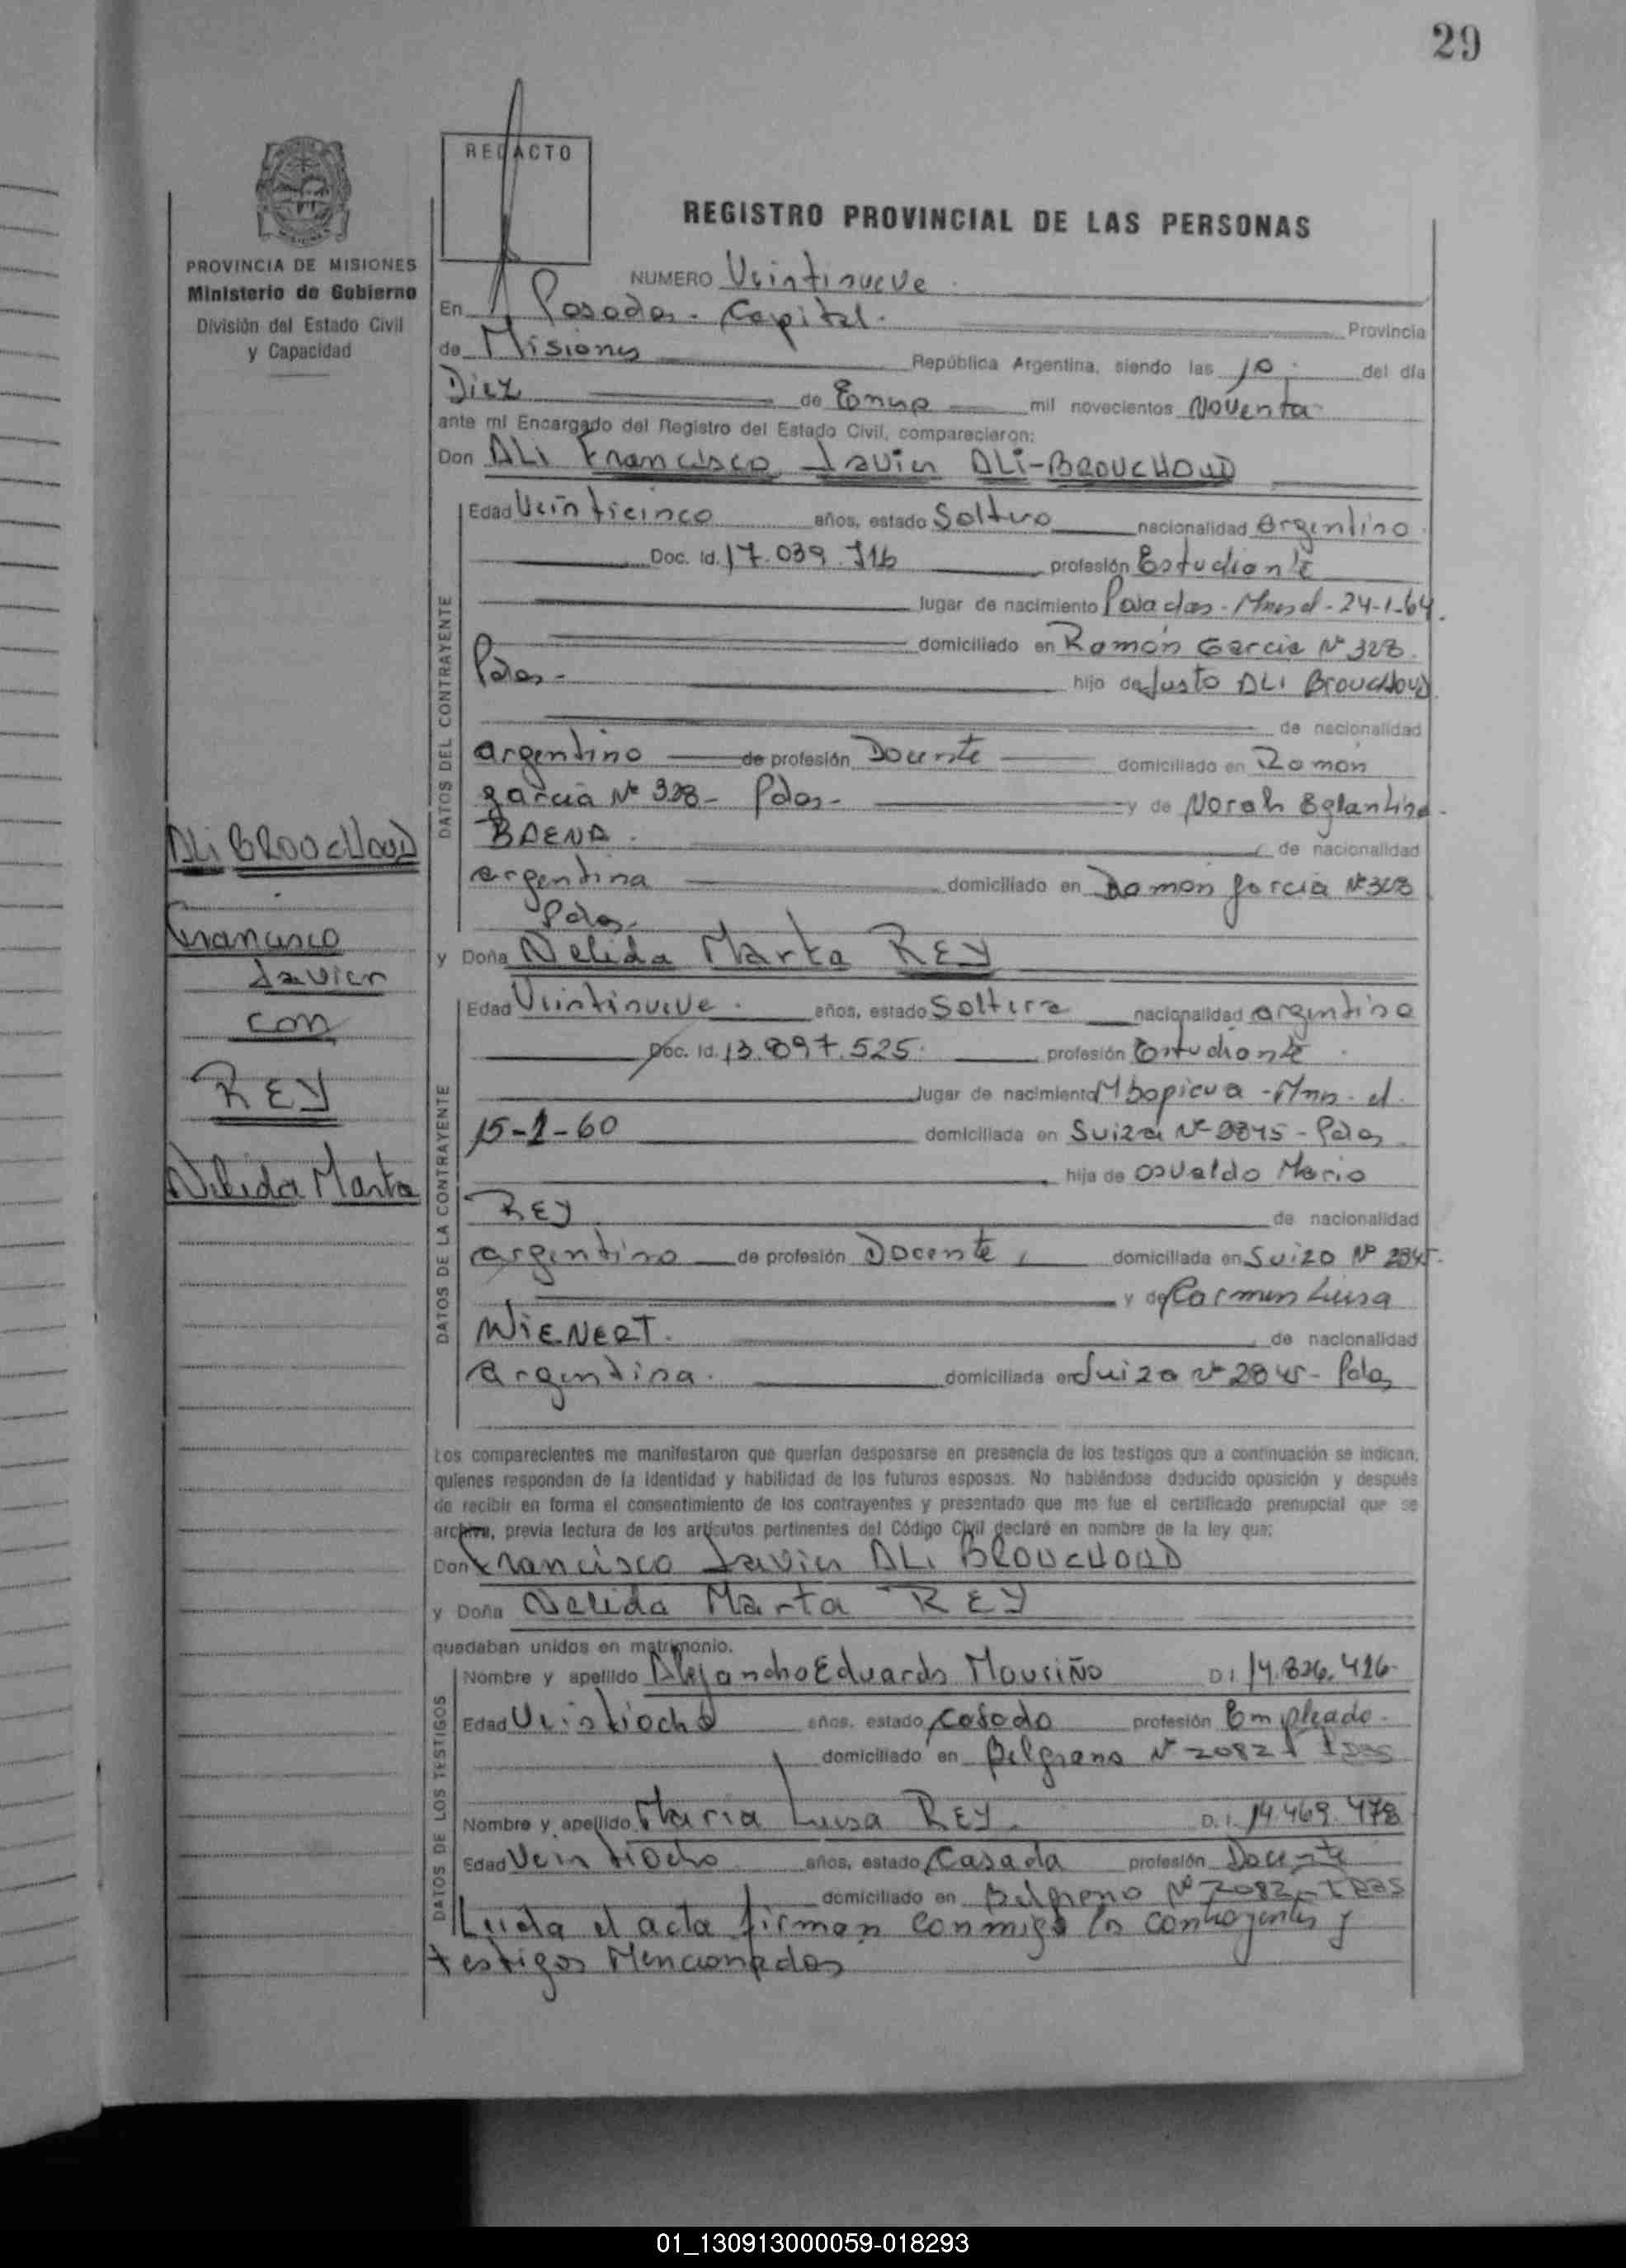 29
REDACTO
REGISTRO PROVINCIAL DE LAS PERSONAS
PROVINCIA DE MISIONES
Ministerio de Gobierno
División del Estado Civil
y Capacidad
NUMERO Veintinueve
En Posadas - Capital - Provincia
de Misiones República Argentina, siendo las 10 del día
Diez de Enero mil novecientos Noventa
ante mí Encargado del Registro del Estado Civil, comparecieron:
Don ALI Francisco Javier ALI-BROUCHOUD
DATOS DEL CONTRAYENTE
Edad Veinticinco años, estado Soltero nacionalidad Argentino
Doc. Id. 17.039.716 profesión Estudiante
lugar de nacimiento Posadas - Mnes el - 24-1-64
domiciliado en Ramón Garcia Nº 328
Pdas - hijo de Justo ALI BROUCHOUD
de nacionalidad
argentino de profesión Docente domiciliado en Ramón
garcia Nº 328 - Pdas - y de Norah Eglantina
BAENA de nacionalidad
argentina domiciliado en Ramón garcia Nº 328
Pdas -
y Doña Nelida Marta REY
DATOS DE LA CONTRAYENTE
Edad Veintinueve años, estado Soltera nacionalidad argentina
Doc. Id. 13.897.525 profesión Estudiante
lugar de nacimiento Mbopicua - Mnes - el
15-1-60 domiciliada en Suiza Nº 2845 - Pdas
hija de Osvaldo Mario
REY de nacionalidad
argentino de profesión Docente domiciliada en Suiza Nº 2845
y de Carmen Luisa
WIENERT. de nacionalidad
argentina. domiciliada en Suiza Nº 2845 - Pdas
Los comparecientes me manifestaron que querían desposarse en presencia de los testigos que a continuación se indican,
quienes responden de la identidad y habilidad de los futuros esposos. No habiéndose deducido oposición y después
de recibir en forma el consentimiento de los contrayentes y presentado que me fue el certificado prenupcial que se
archiva, previa lectura de los artículos pertinentes del Código Civil declaré en nombre de la ley que:
Don Francisco Javier ALI BROUCHOUD
y Doña Nelida Marta REY
quedaban unidos en matrimonio.
DATOS DE LOS TESTIGOS
Nombre y apellido Alejandro Eduardo Mouriño D.I. 14.826.416
Edad Veintiocho años, estado Casado profesión Empleado -
domiciliado en Belgrano Nº 2082 - PDAS
Nombre y apellido Maria Luisa REY. D.I. 14.469.478
Edad Veintiocho años, estado Casada profesión Docente
domiciliado en Belgrano Nº 2082 - PDAS
Leida el acta firman conmigo los contrayentes y
testigos Mencionados
ALI BROUCHOUD
Francisco
Javier
con
REY
Nelida Marta
01_130913000059-018293